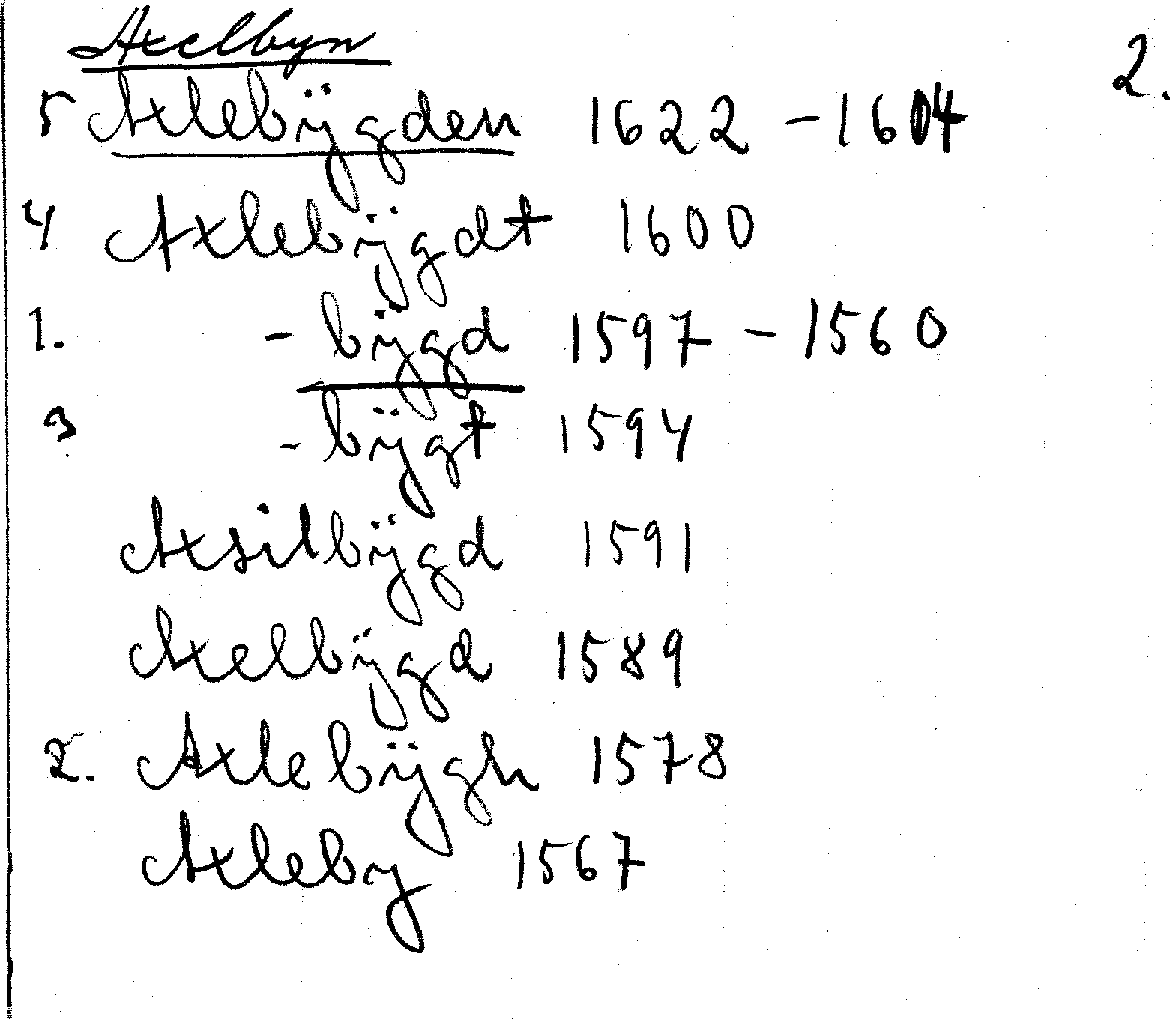 Axelbyn
2.
5 Axlebÿgden 1622 - 1604
4 Axlebÿgdt 1600
1. - bÿgd 1597 - 1560
3 - bÿgt 1594
Axsilbÿgd 1591
Axelbÿgd 1589
2. Axlebÿgh 1578
Axleby 1567